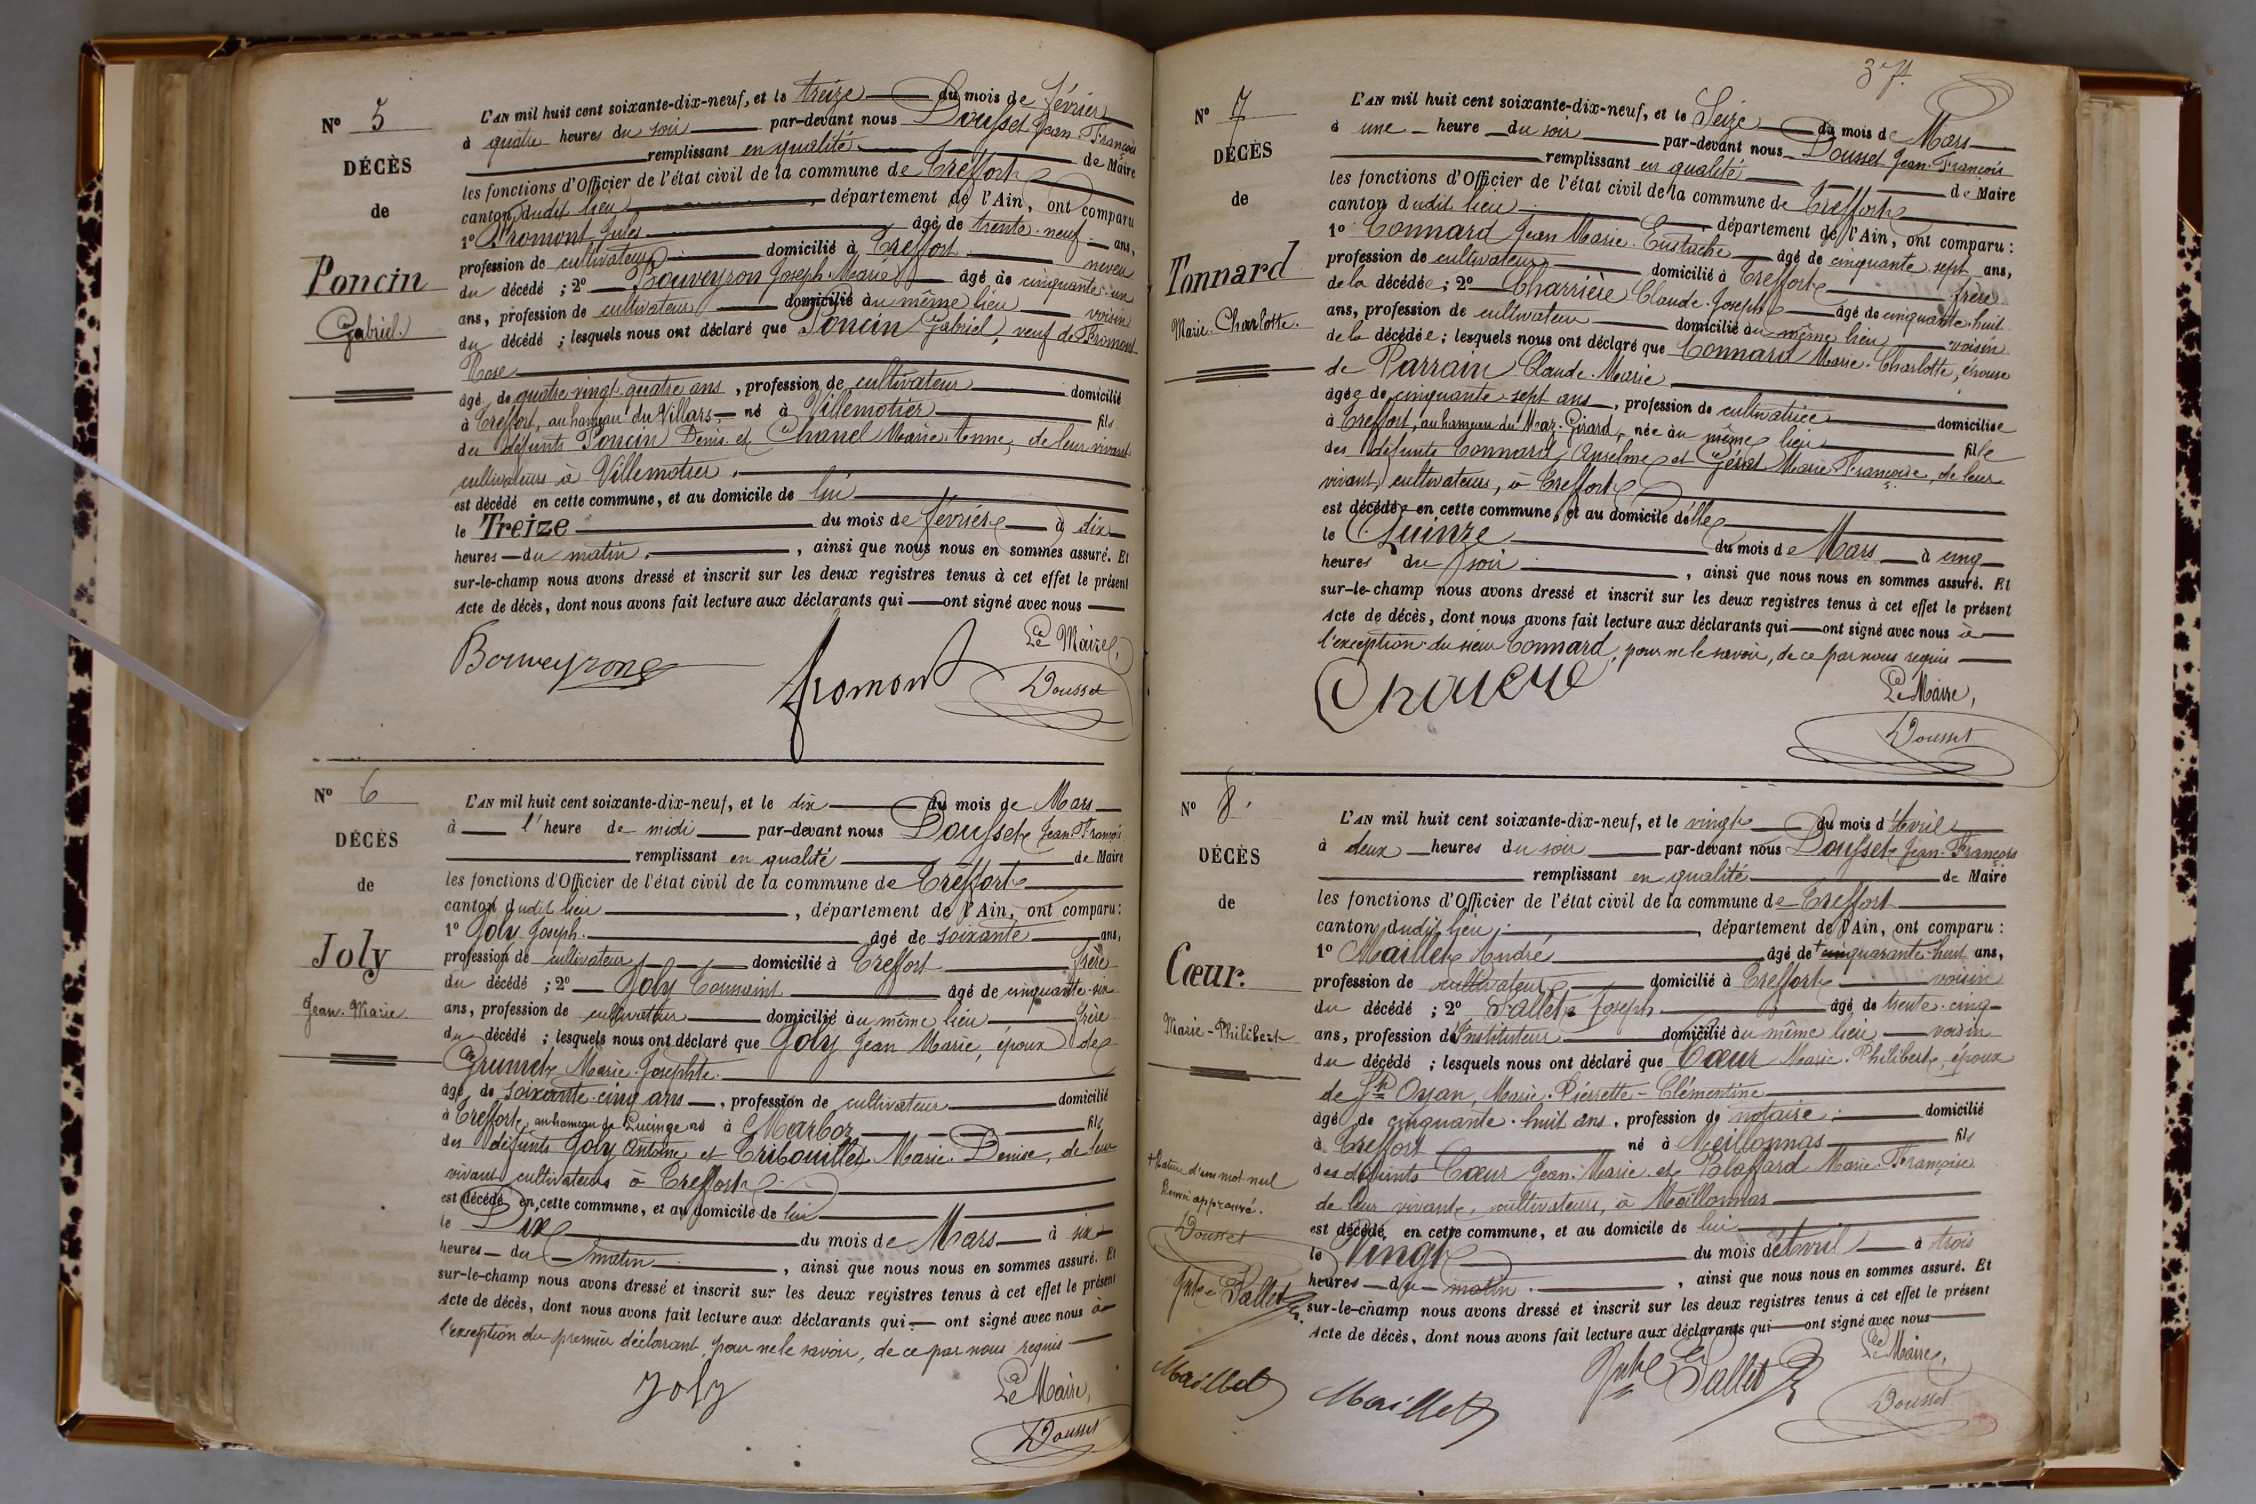 Nº 5
DÉCÈS
de
Poncin
Gabriel
L'AN mil huit cent soixante-dix-neuf, et le treize du mois de février
à quatre heures du soir par-devant nous Dousset Jean-François
remplissant en qualité de Maire
les fonctions d'Officier de l'état civil de la commune de Treffort
canton dudit lieu, département de l'Ain, ont comparu
1º Fromont Jules âgé de trente-neuf ans,
profession de cultivateur domicilié à Treffort neveu
du décédé ; 2º Bouveyron Joseph-Marie âgé de cinquante-un
ans, profession de cultivateur domicilié au même lieu voisin
du décédé ; lesquels nous ont déclaré que Poncin Gabriel, veuf de Fromont
Rose
âgé de quatre-vingt-quatre ans, profession de cultivateur domicilié
à Treffort, au hameau du Villars, né à Villemotier fils
des défunts Poncin Denis et Chanel Marie-Anne, de leur vivant
cultivateurs à Villemotier.
est décédé en cette commune, et au domicile de lui
le Treize du mois de février à dix
heures du matin, ainsi que nous nous en sommes assuré. Et
sur-le-champ nous avons dressé et inscrit sur les deux registres tenus à cet effet le présent
Acte de décès, dont nous avons fait lecture aux déclarants qui ont signé avec nous
Bouveyron fromont Le Maire,
Dousset
Nº 6
DÉCÈS
de
Joly
Jean-Marie
L'AN mil huit cent soixante-dix-neuf, et le dix du mois de Mars
à l'heure de midi par-devant nous Dousset Jean-François
remplissant en qualité de Maire
les fonctions d'Officier de l'état civil de la commune de Treffort
canton dudit lieu, département de l'Ain, ont comparu :
1º Joly Joseph. âgé de soixante ans,
profession de cultivateur domicilié à Treffort frère
du décédé ; 2º Joly Toussaint âgé de cinquante-six
ans, profession de cultivateur domicilié au même lieu frère
du décédé ; lesquels nous ont déclaré que Joly Jean Marie, époux de
Grumet Marie-Josephte.
âgé de soixante-cinq ans, profession de cultivateur domicilié
à Treffort, au hameau de Lucinge né à Marboz fils
des défunts Joly Antoine et Tribouillet Marie-Denise, de leur
vivant cultivateurs à Treffort
est décédé en cette commune, et au domicile de lui
le Dix du mois de Mars à six
heures du matin, ainsi que nous nous en sommes assuré. Et
sur-le-champ nous avons dressé et inscrit sur les deux registres tenus à cet effet le présent
Acte de décès, dont nous avons fait lecture aux déclarants qui ont signé avec nous à
l'exception du premier déclarant, pour ne le savoir, de ce par nous requis
Joly Le Maire,
Dousset
37.
Nº 7
DÉCÈS
de
Tonnard
Marie-Charlotte.
L'AN mil huit cent soixante-dix-neuf, et le Seize du mois de Mars
à une heure du soir par-devant nous Dousset Jean-François
remplissant en qualité de Maire
les fonctions d'Officier de l'état civil de la commune de Treffort
canton dudit lieu département de l'Ain, ont comparu :
1º Tonnard Jean Marie-Eustache âgé de cinquante-sept ans,
profession de cultivateur domicilié à Treffort frère
de la décédée ; 2º Charrière Claude-Joseph âgé de cinquante-huit
ans, profession de cultivateur domicilié au même lieu voisin
de la décédée ; lesquels nous ont déclaré que Tonnard Marie-Charlotte, épouse
de Parrain Claude-Marie
âgée de cinquante-sept ans, profession de cultivatrice domiciliée
à Treffort, au hameau du Maz-Girard, née au même lieu fille
des défunts Tonnard Anselme et Marie-Françoise, de leur
vivant, cultivateurs, à Treffort
est décédée en cette commune, et au domicile d'elle
le Quinze du mois de Mars à cinq
heures du soir, ainsi que nous nous en sommes assuré. Et
sur-le-champ nous avons dressé et inscrit sur les deux registres tenus à cet effet le présent
Acte de décès, dont nous avons fait lecture aux déclarants qui ont signé avec nous à
l'exception du sieur Tonnard, pour ne le savoir, de ce par nous requis
Le Maire,
Dousset
Nº 8.
DÉCÈS
de
Cœur.
Marie-Philibert
L'AN mil huit cent soixante-dix-neuf, et le vingt du mois d'Avril
à deux heures du soir par-devant nous Dousset Jean-François
remplissant en qualité de Maire
les fonctions d'Officier de l'état civil de la commune de Treffort
canton dudit lieu, département de l'Ain, ont comparu :
1º Maillet André âgé de + quarante-huit ans,
profession de cultivateur domicilié à Treffort voisin
du décédé ; 2º Pallet Joseph âgé de trente-cinq
ans, profession d'Instituteur domicilié au même lieu voisin
du décédé ; lesquels nous ont déclaré que Cœur Marie-Philibert, époux
de St Oyan, Marie-Pierrette-Clémentine
âgé de cinquante-huit ans, profession de notaire. domicilié
à Treffort né à Meillonnas fils
des défunts Cœur Jean-Marie et Palaffard Marie-Françoise
de leur vivant, cultivateurs, à Meillonnas
est décédé en cette commune, et au domicile de lui
le Vingt du mois d'Avril à trois
heures du matin, ainsi que nous nous en sommes assuré. Et
sur-le-champ nous avons dressé et inscrit sur les deux registres tenus à cet effet le présent
Acte de décès, dont nous avons fait lecture aux déclarants qui ont signé avec nous
+ Rature d'un mot nul
approuvé.
Dousset
Pallet
Maillet
Maillet Pallet Le Maire,
Dousset